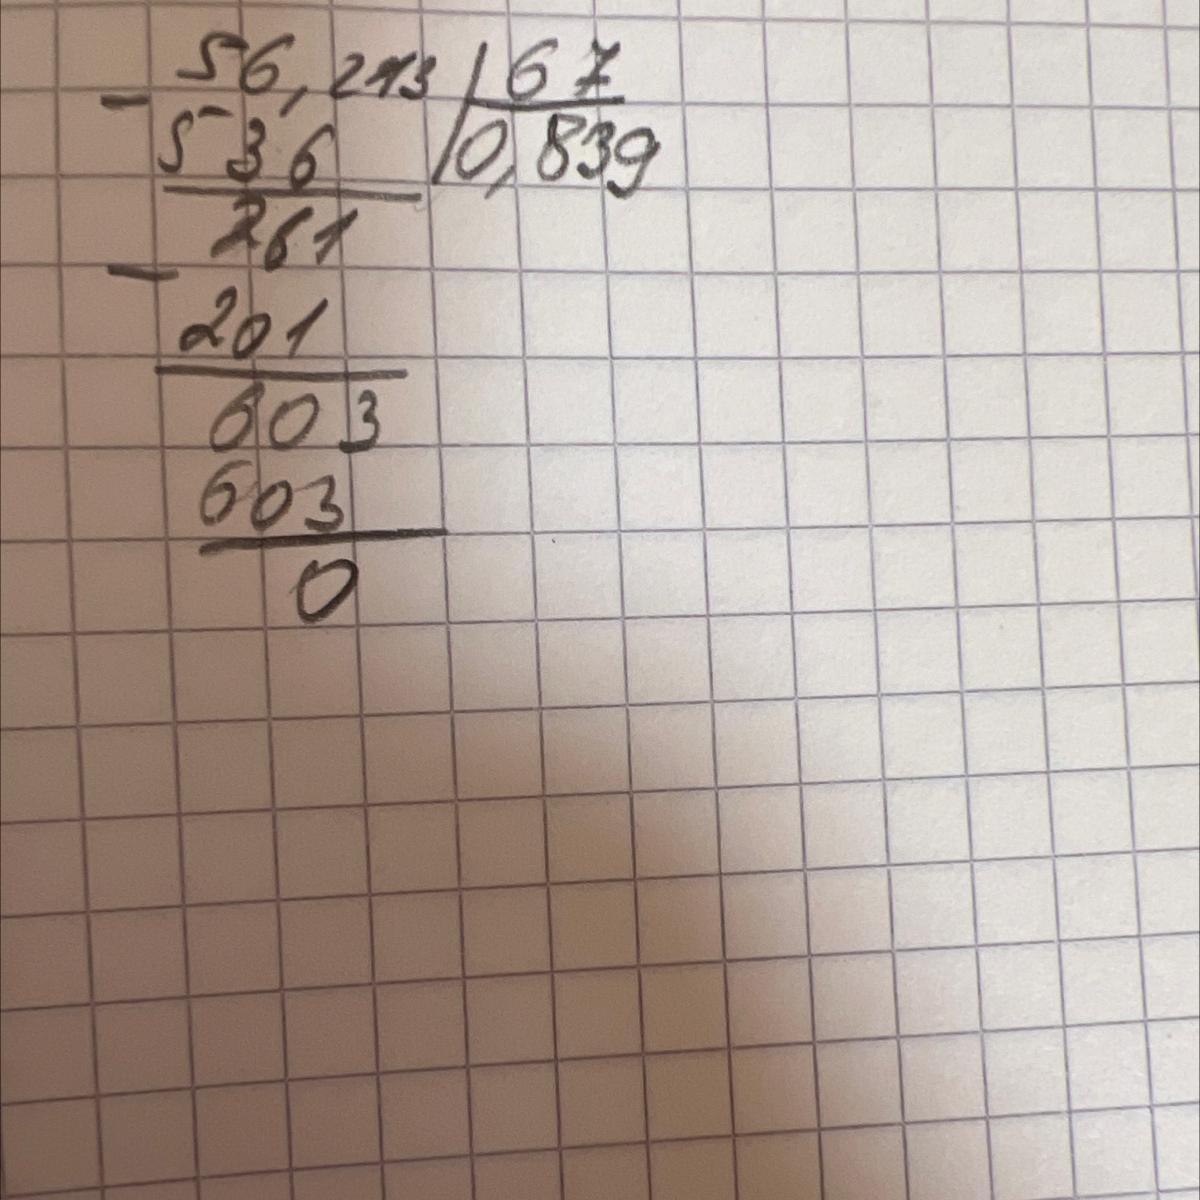 56,213 | 67
- 536 | 0,839
261
- 201
603
603
0